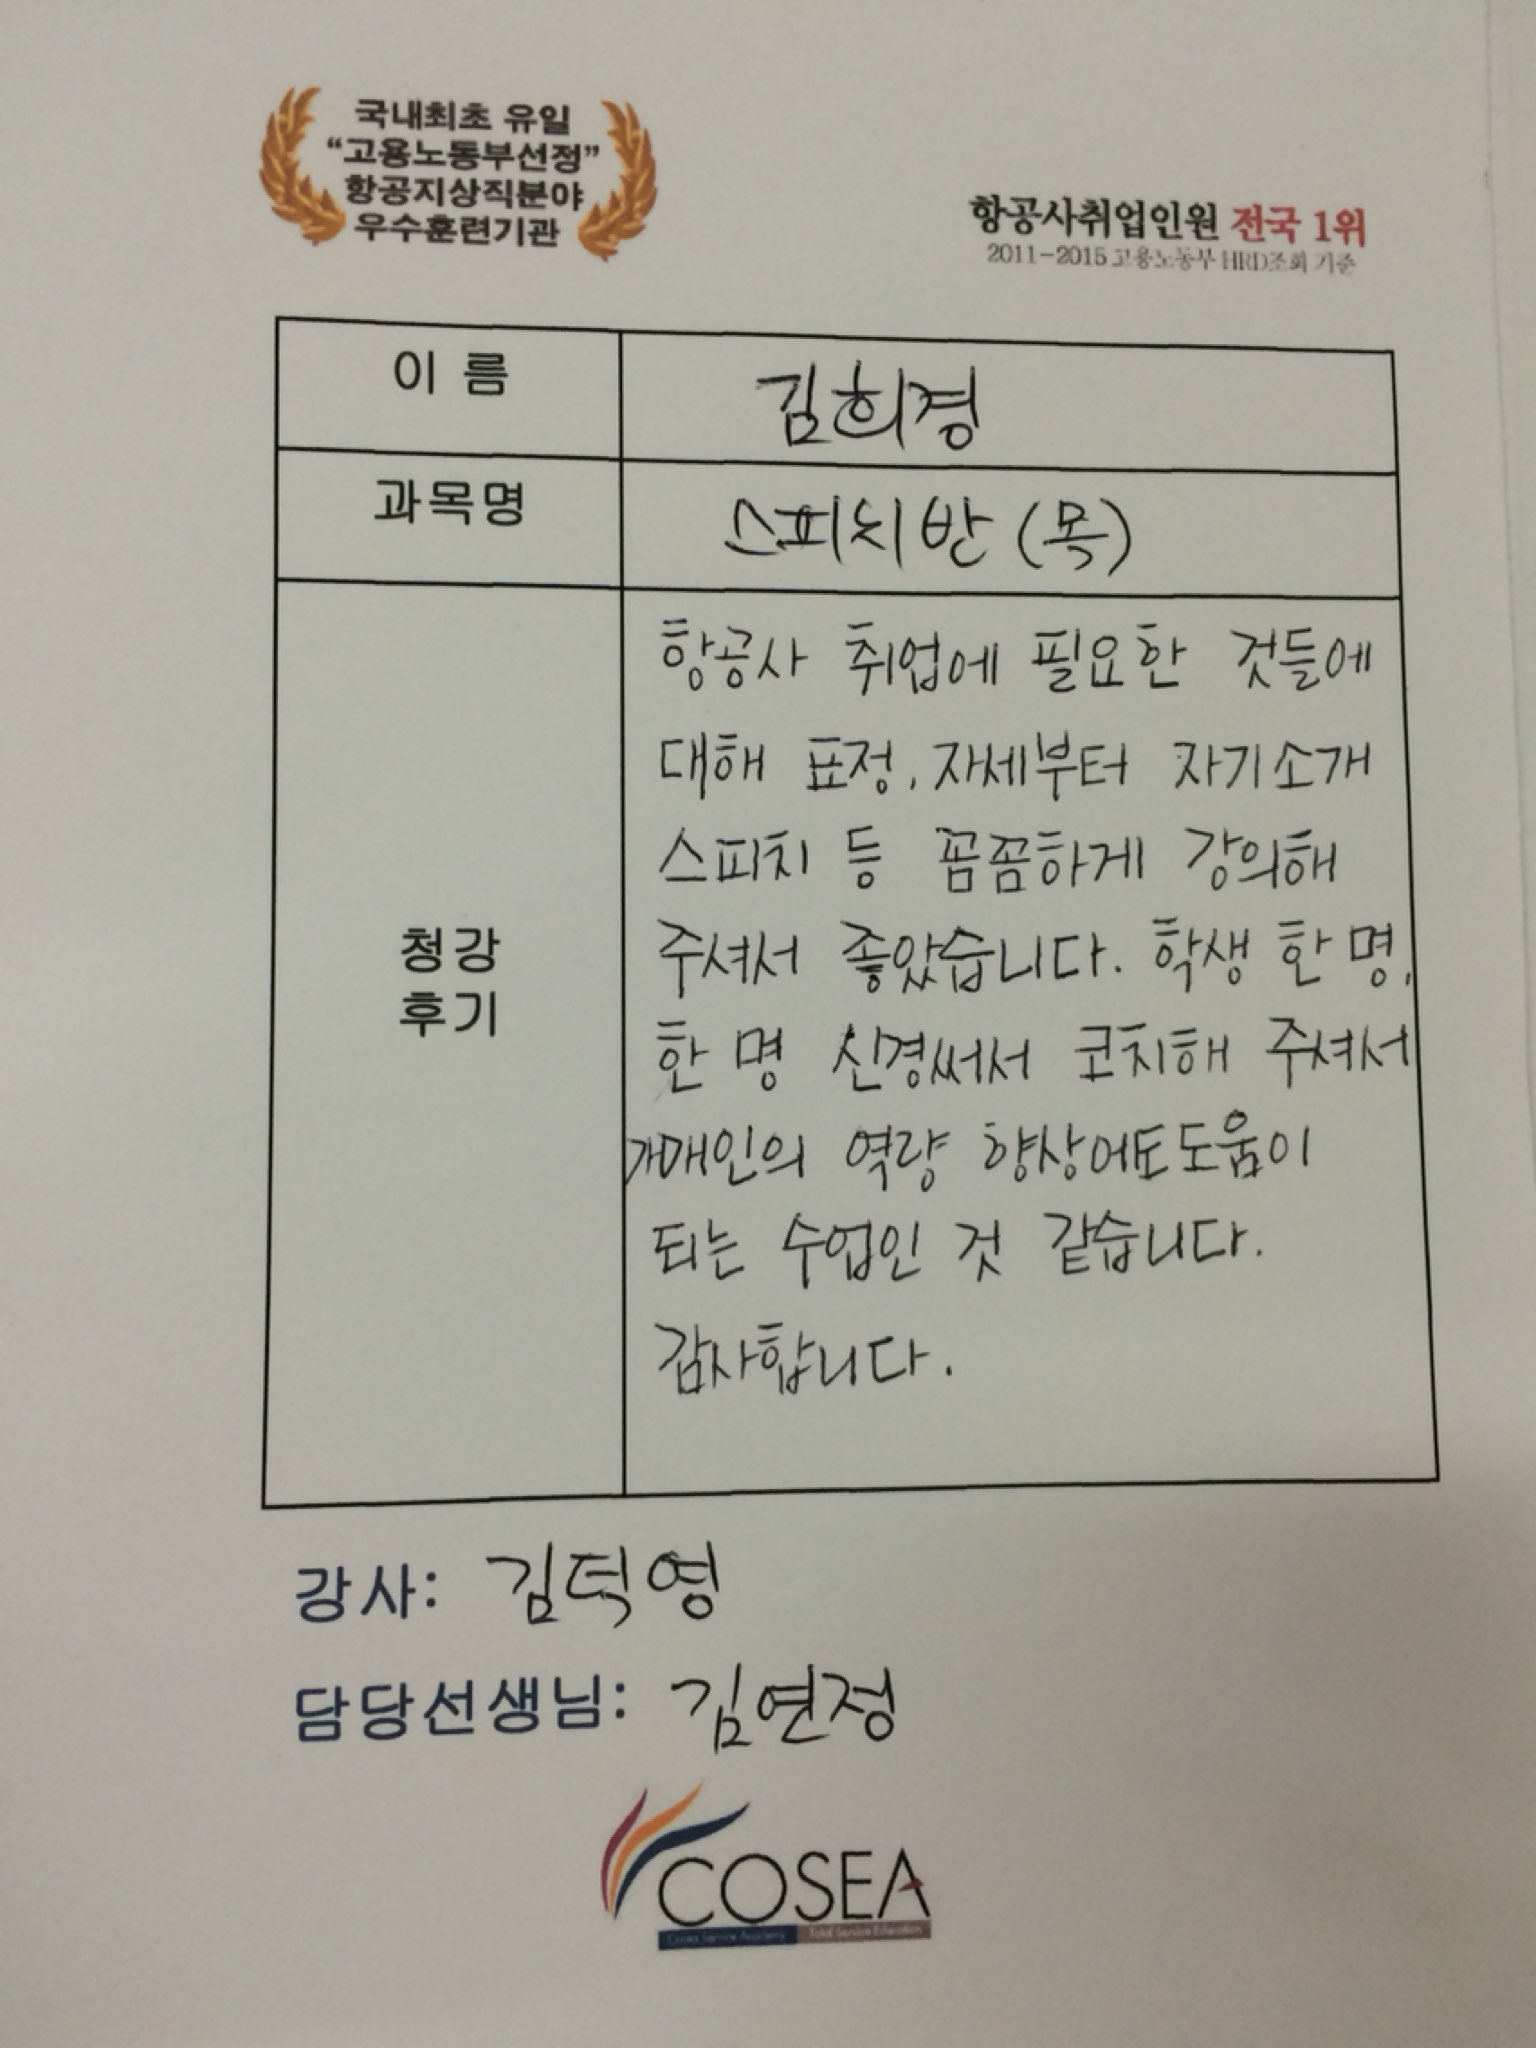 국내최초 유일
“고용노동부선정”
항공지상직분야
우수훈련기관
항공사취업인원 전국 1위
2011-2015 고용노동부 HRD조회 기준
이 름
김희경
과목명
스피치반 (목)
청강
후기
항공사 취업에 필요한 것들에
대해 표정, 자세부터 자기소개
스피치 등 꼼꼼하게 강의해
주셔서 좋았습니다. 학생 한 명,
한 명 신경써서 코치해 주셔서
개매인의 역량 향상에도도움이
되는 수업인 것 같습니다.
감사합니다.
강사: 김덕영
담당선생님: 김연정
COSEA
Cosea Service Academy Total Service Education